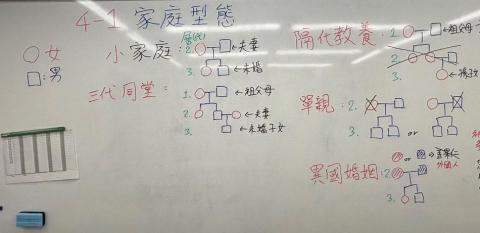 4-1 家庭型態
○女
□:男
小家庭:
層(代)
2.
←夫妻
3.
←未婚
三代同堂:
1.
←祖父母
2.
←夫妻
3.
←未婚子女
隔代教養:
1
←祖父母
2.
3.
單親:2.
3.
or
異國婚姻:2
or
外國人
3.